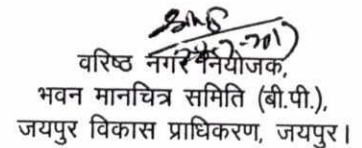 वरिष्ठ नगर नियोजक,
भवन मानचित्र समिति (बी.पी.),
जयपुर विकास प्राधिकरण, जयपुर।